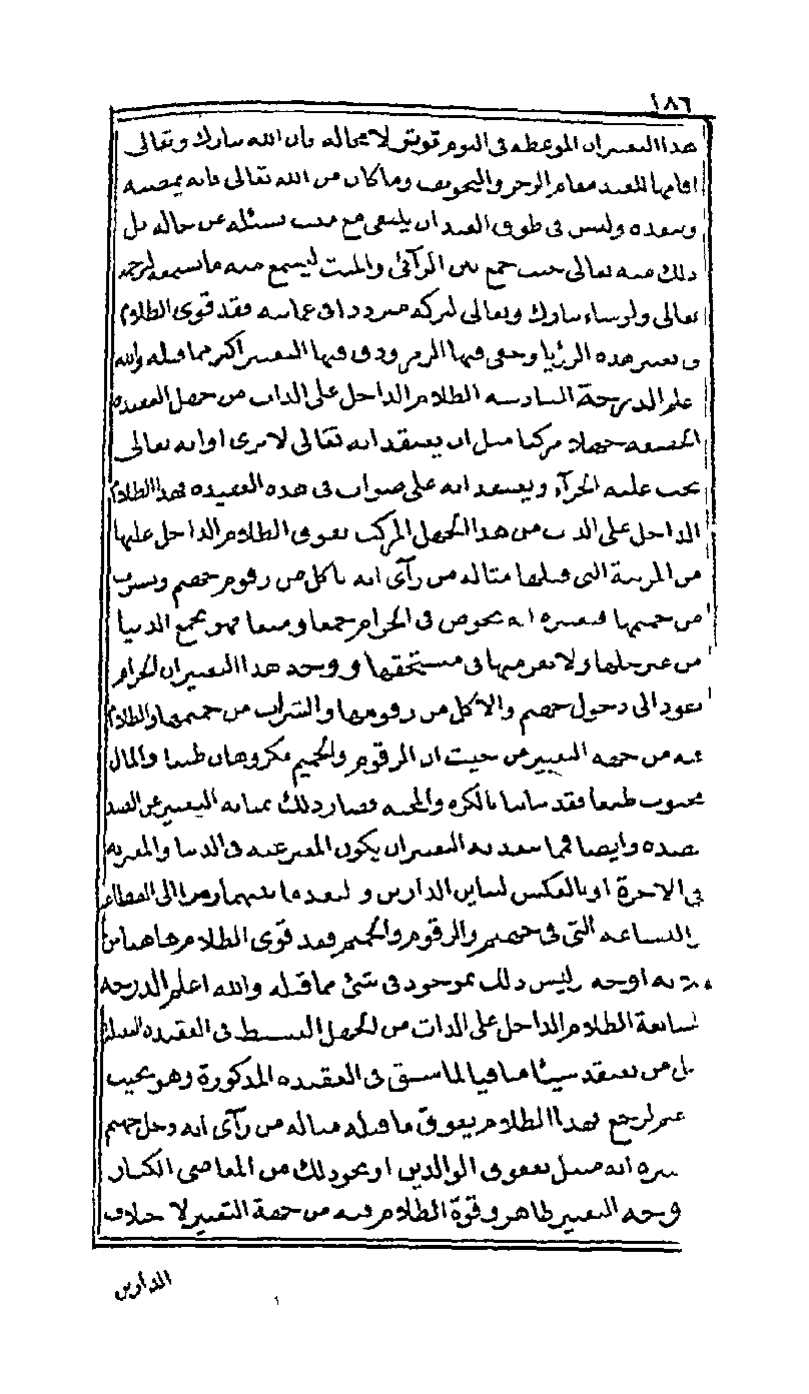 ١٨٦
هذا التعبير ان الموعظة فى النوم توبيخ لا محالة فان الله تبارك وتعالى
اقامها للعبد مقام الزجر والتخويف وما كان من الله تعالى فانه يمضيه
وينفذه وليس فى طوق العبد ان يلتقى مع ميت يسئله عن حاله بل
ذلك منه تعالى حيث جمع بين الرآئى والميت ليسمع منه ما يسمع لرحمه
تعالى ولو شاء تبارك وتعالى لتركه مترددا فى عمايته فقد قوى الظلام
فى تعبير هذه الرؤيا وخفى فيها الرمز ودق فيها التعبير اكثر مما قبله والله
اعلم الدرجة السادسة الظلام الداخل على الذات من جهل العقيدة
الخفيفة جهلا مركبا مثل ان يعتقد انه تعالى لا يرى او انه تعالى
يجب عليه الجزآء ويعتقد انه على صواب فى هذه العقيدة فهذا الظلام
الداخل على الذات من هذا الجهل المركب يفوق الظلام الداخل عليها
من المرتبة التى قبلها مثاله من رآى انه ياكل من زقوم جهنم ويشرب
من حميمها فتعبيره انه يخوض فى الحرام جمعا ومنعا فهو يجمع الدنيا
من غير حلها ولا يفرقها فى مستحقها ووجه هذا التعبير ان الحرام
يعود الى دخول جهنم والاكل من زقومها والشراب من حميمها والظلام
فيه من جهة التعبير من حيث ان الزقوم والحميم مكروهان طبعا والمال
محبوب طبعا فقد تباينا بالكره والمحبة فصار ذلك بمثابة التعبير عن الضد
بضده وايضا فما يبعد به التعبير ان يكون المعبر عنه فى الدنيا والمعبر به
فى الاخرة او بالعكس لتباين الدارين ولبعد ما بينهما
التى فى جهنم والزقوم والحميم فقد قوى الظلام هاهنا من
اوجه وليس ذلك بموجود فى شئ مما قبله والله اعلم الدرجة
السابعة الظلام الداخل على الذات من الجهل البسيط فى العقيدة الثقيلة
مثل من يعتقد شيئا منافيا لما سبق فى العقيدة المذكورة وهو بحيث
لو علم لرجع فهذا الظلام يفوق ما قبله مثاله من رآى انه دخل جهنم
فتعبيره انه مبتلى بعقوق الوالدين او نحو ذلك من المعاصى الكبار
ووجه التعبير ظاهر وقوة الظلام فيه من جهة التعبير لاختلاف
الدارين